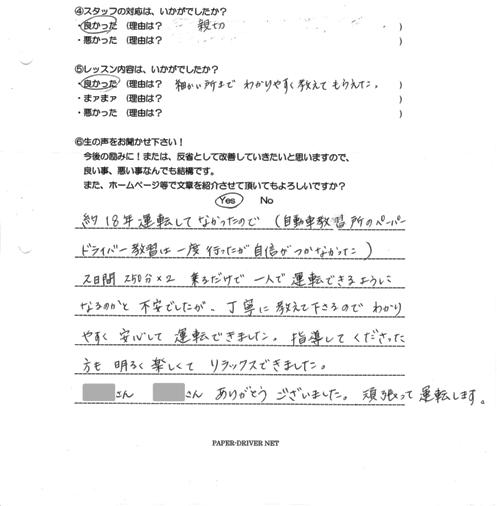 ④スタッフの対応は、いかがでしたか？
・良かった（理由は？ 親切 ）
・悪かった（理由は？ ）
⑤レッスン内容は、いかがでしたか？
・良かった（理由は？ 細かい所まで わかりやすく教えてもらえた。 ）
・まァまァ（理由は？ ）
・悪かった（理由は？ ）
⑥生の声をお聞かせ下さい！
今後の励みに！または、反省として改善していきたいと思いますので、
良い事、悪い事なんでも結構です。
また、ホームページ等で文章を紹介させて頂いてもよろしいですか？
Yes No
約18年運転してなかったので（自動車教習所のペーパー
ドライバー教習は一度行ったが自信がつかなかった）
2日間 250分×2 乗るだけで 一人で 運転できるように
なるのかと 不安でしたが、丁寧に教えて下さるので わかり
やすく 安心して 運転できました。指導してくださった
方も 明るく楽しくて リラックスできました。
さん さん ありがとう ございました。頑張って運転します。
PAPER-DRIVER NET